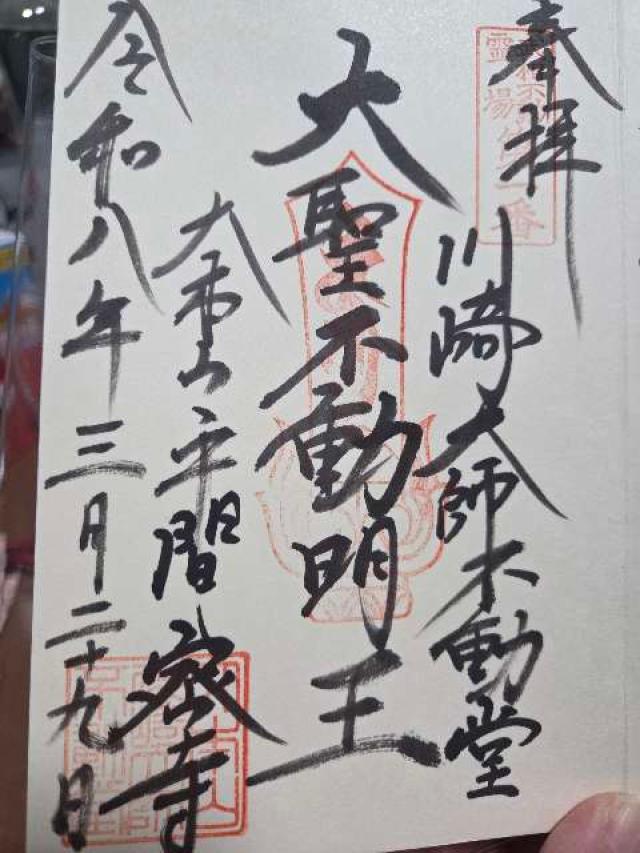 奉拝
川崎大師不動堂
大聖不動明王
大本山平間密寺
令和八年三月二十九日